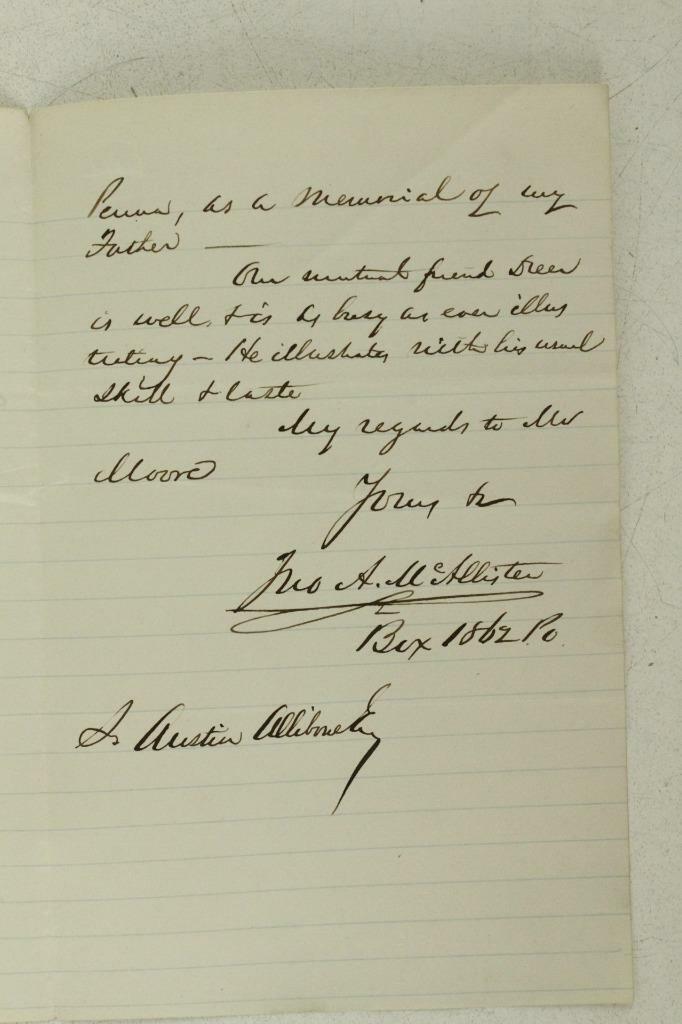 Penna, as a Memorial of my
Father —
Our mutual friend Dreer
is well, & is as busy as ever illus
trating — He illustrates with his usual
skill & taste
My regards to Mr
Moore
Yours &c
Jno A. McAllister
Box 1862 Po.
S. Austin Allibone Esq